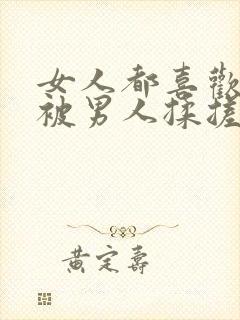 女人都喜歡
被男人揉搓
黃定壽